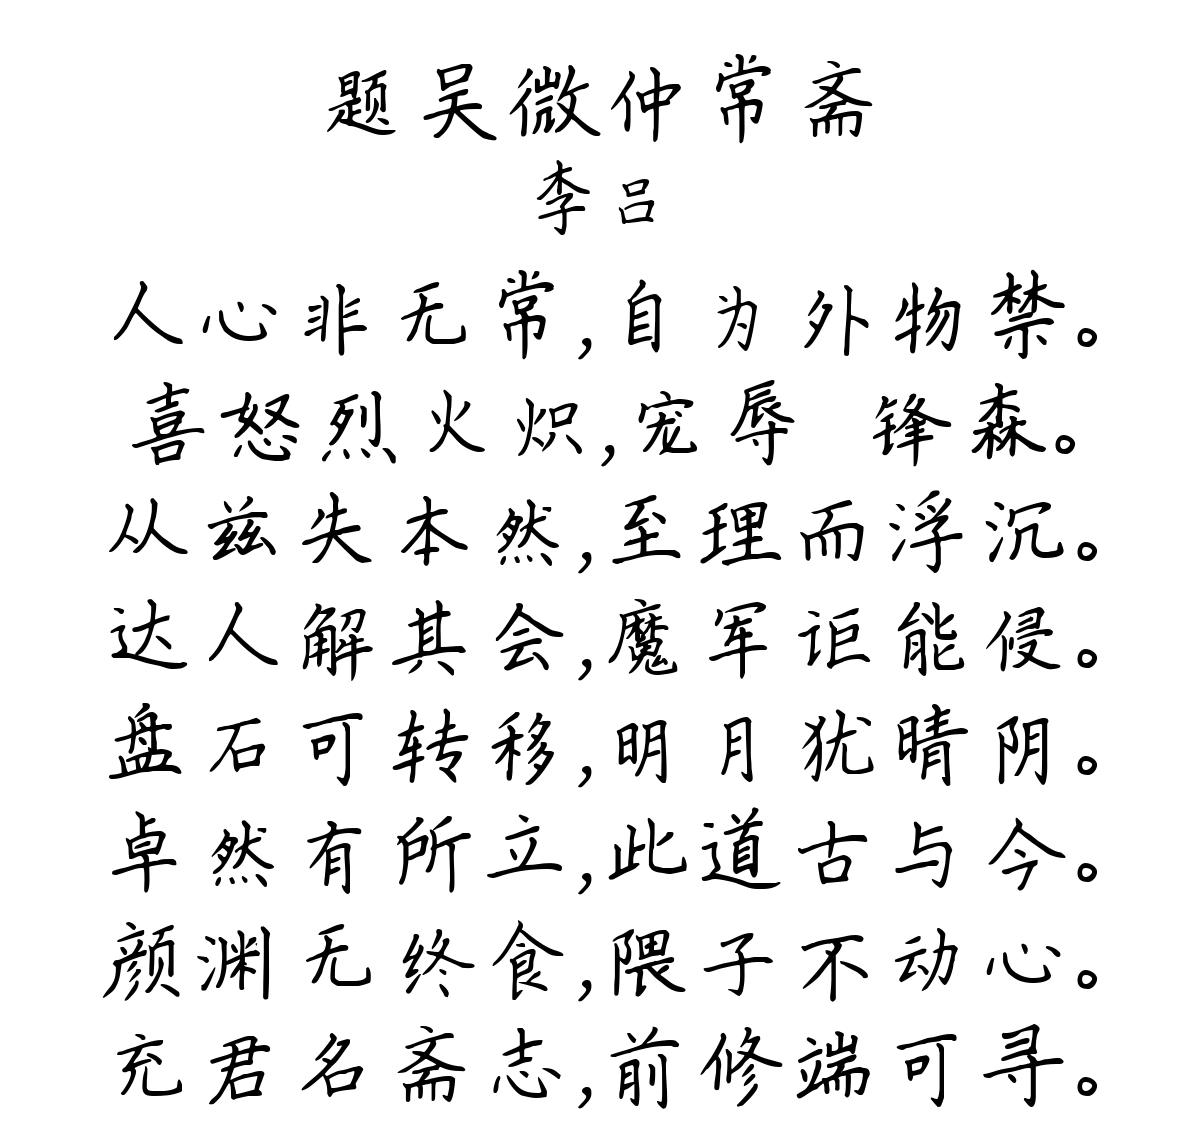 题吴微仲常斋
李吕
人心非无常,自为外物禁。
喜怒烈火炽,宠辱 锋森。
从兹失本然,至理而浮沉。
达人解其会,魔军讵能侵。
盘石可转移,明月犹晴阴。
卓然有所立,此道古与今。
颜渊无终食,隈子不动心。
充君名斋志,前修端可寻。